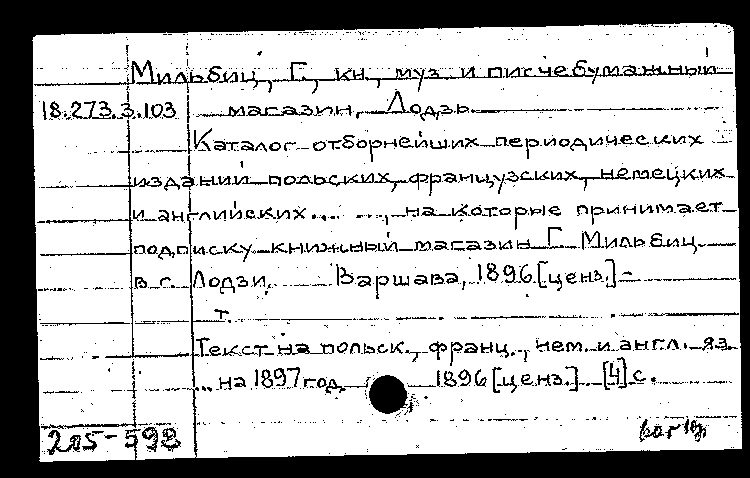 Мильбиц, Г., кн., муз. и писчебумажный
18.273.3.103 магазин, Лодзь.
Каталог отборнейших периодических
изданий польских, французских, немецких
и английских... ..., на которые принимает
подписку книжный магазин Г. Мильбиц
в г. Лодзи. Варшава, 1896 [ценз.] -
т.
Текст на польск., франц., нем. и англ. яз.
... на 1897 год. 1896 [ценз.] [4] с.
205-598